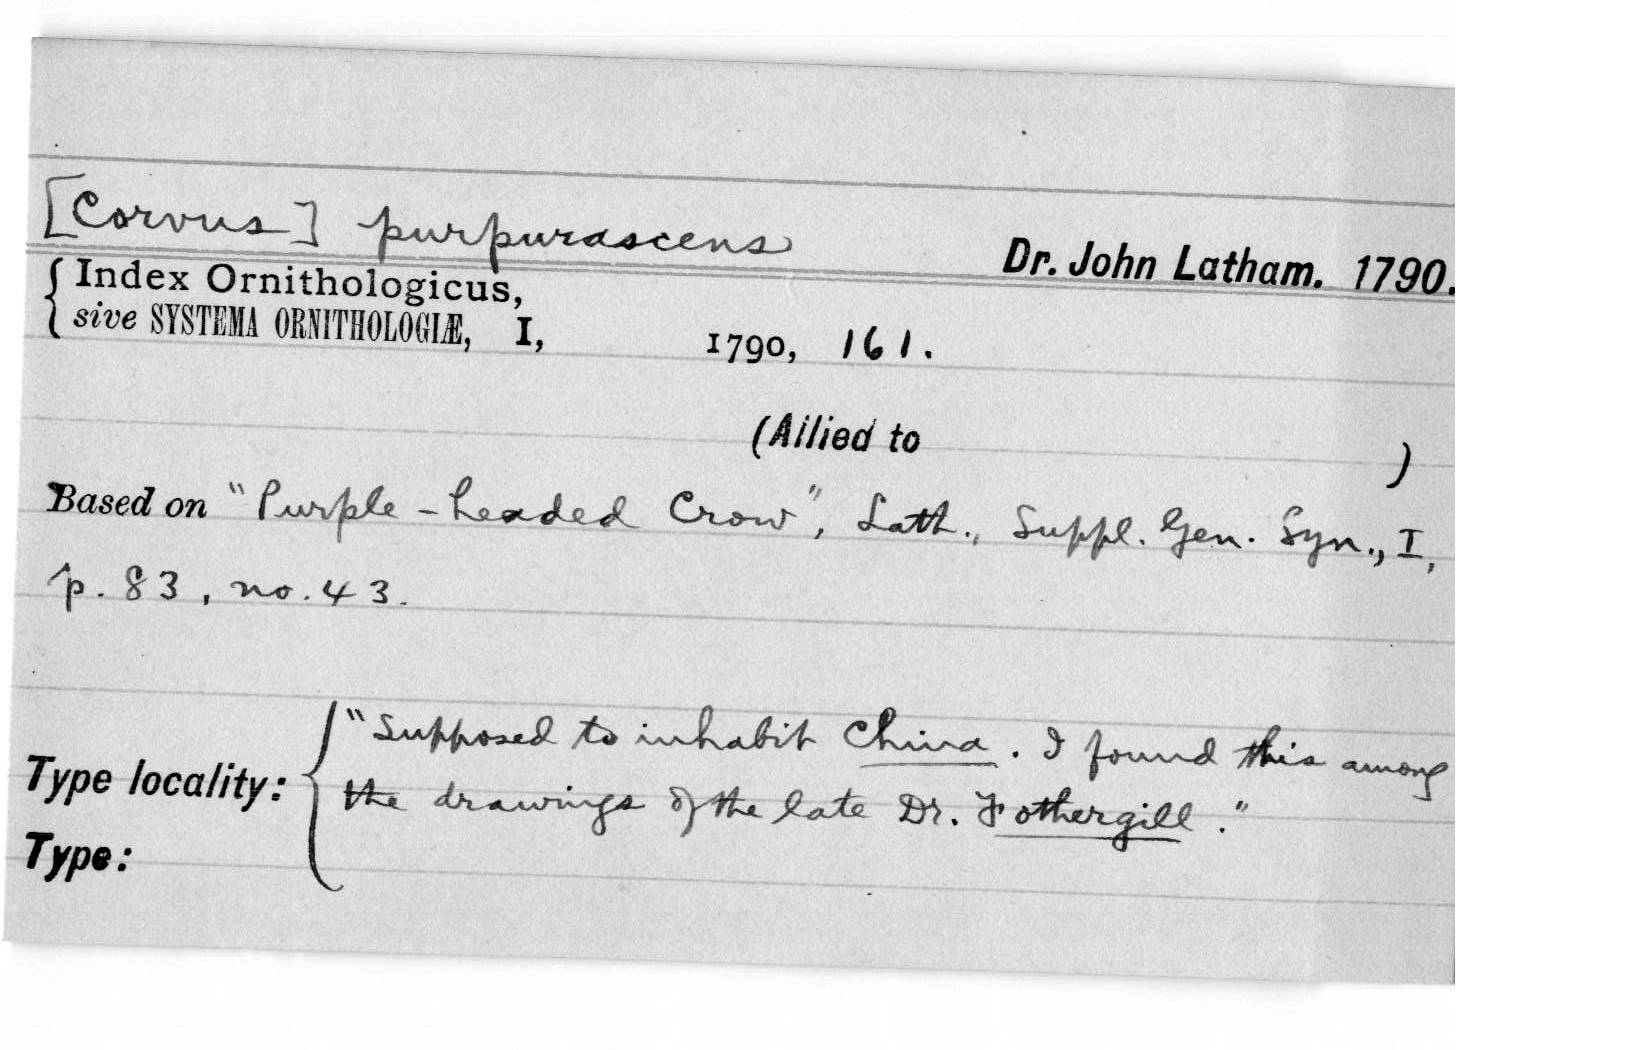 [Corvus] purpurascens Dr. John Latham. 1790.
Index Ornithologicus,
sive SYSTEMA ORNITHOLOGIÆ, I, 1790, 161.
(Allied to )
Based on "Purple-headed Crow", Lath., Suppl. Gen. Syn., I,
p. 83, no. 43.
"Supposed to inhabit China. I found this among
Type locality: the drawings of the late Dr. Fothergill."
Type: